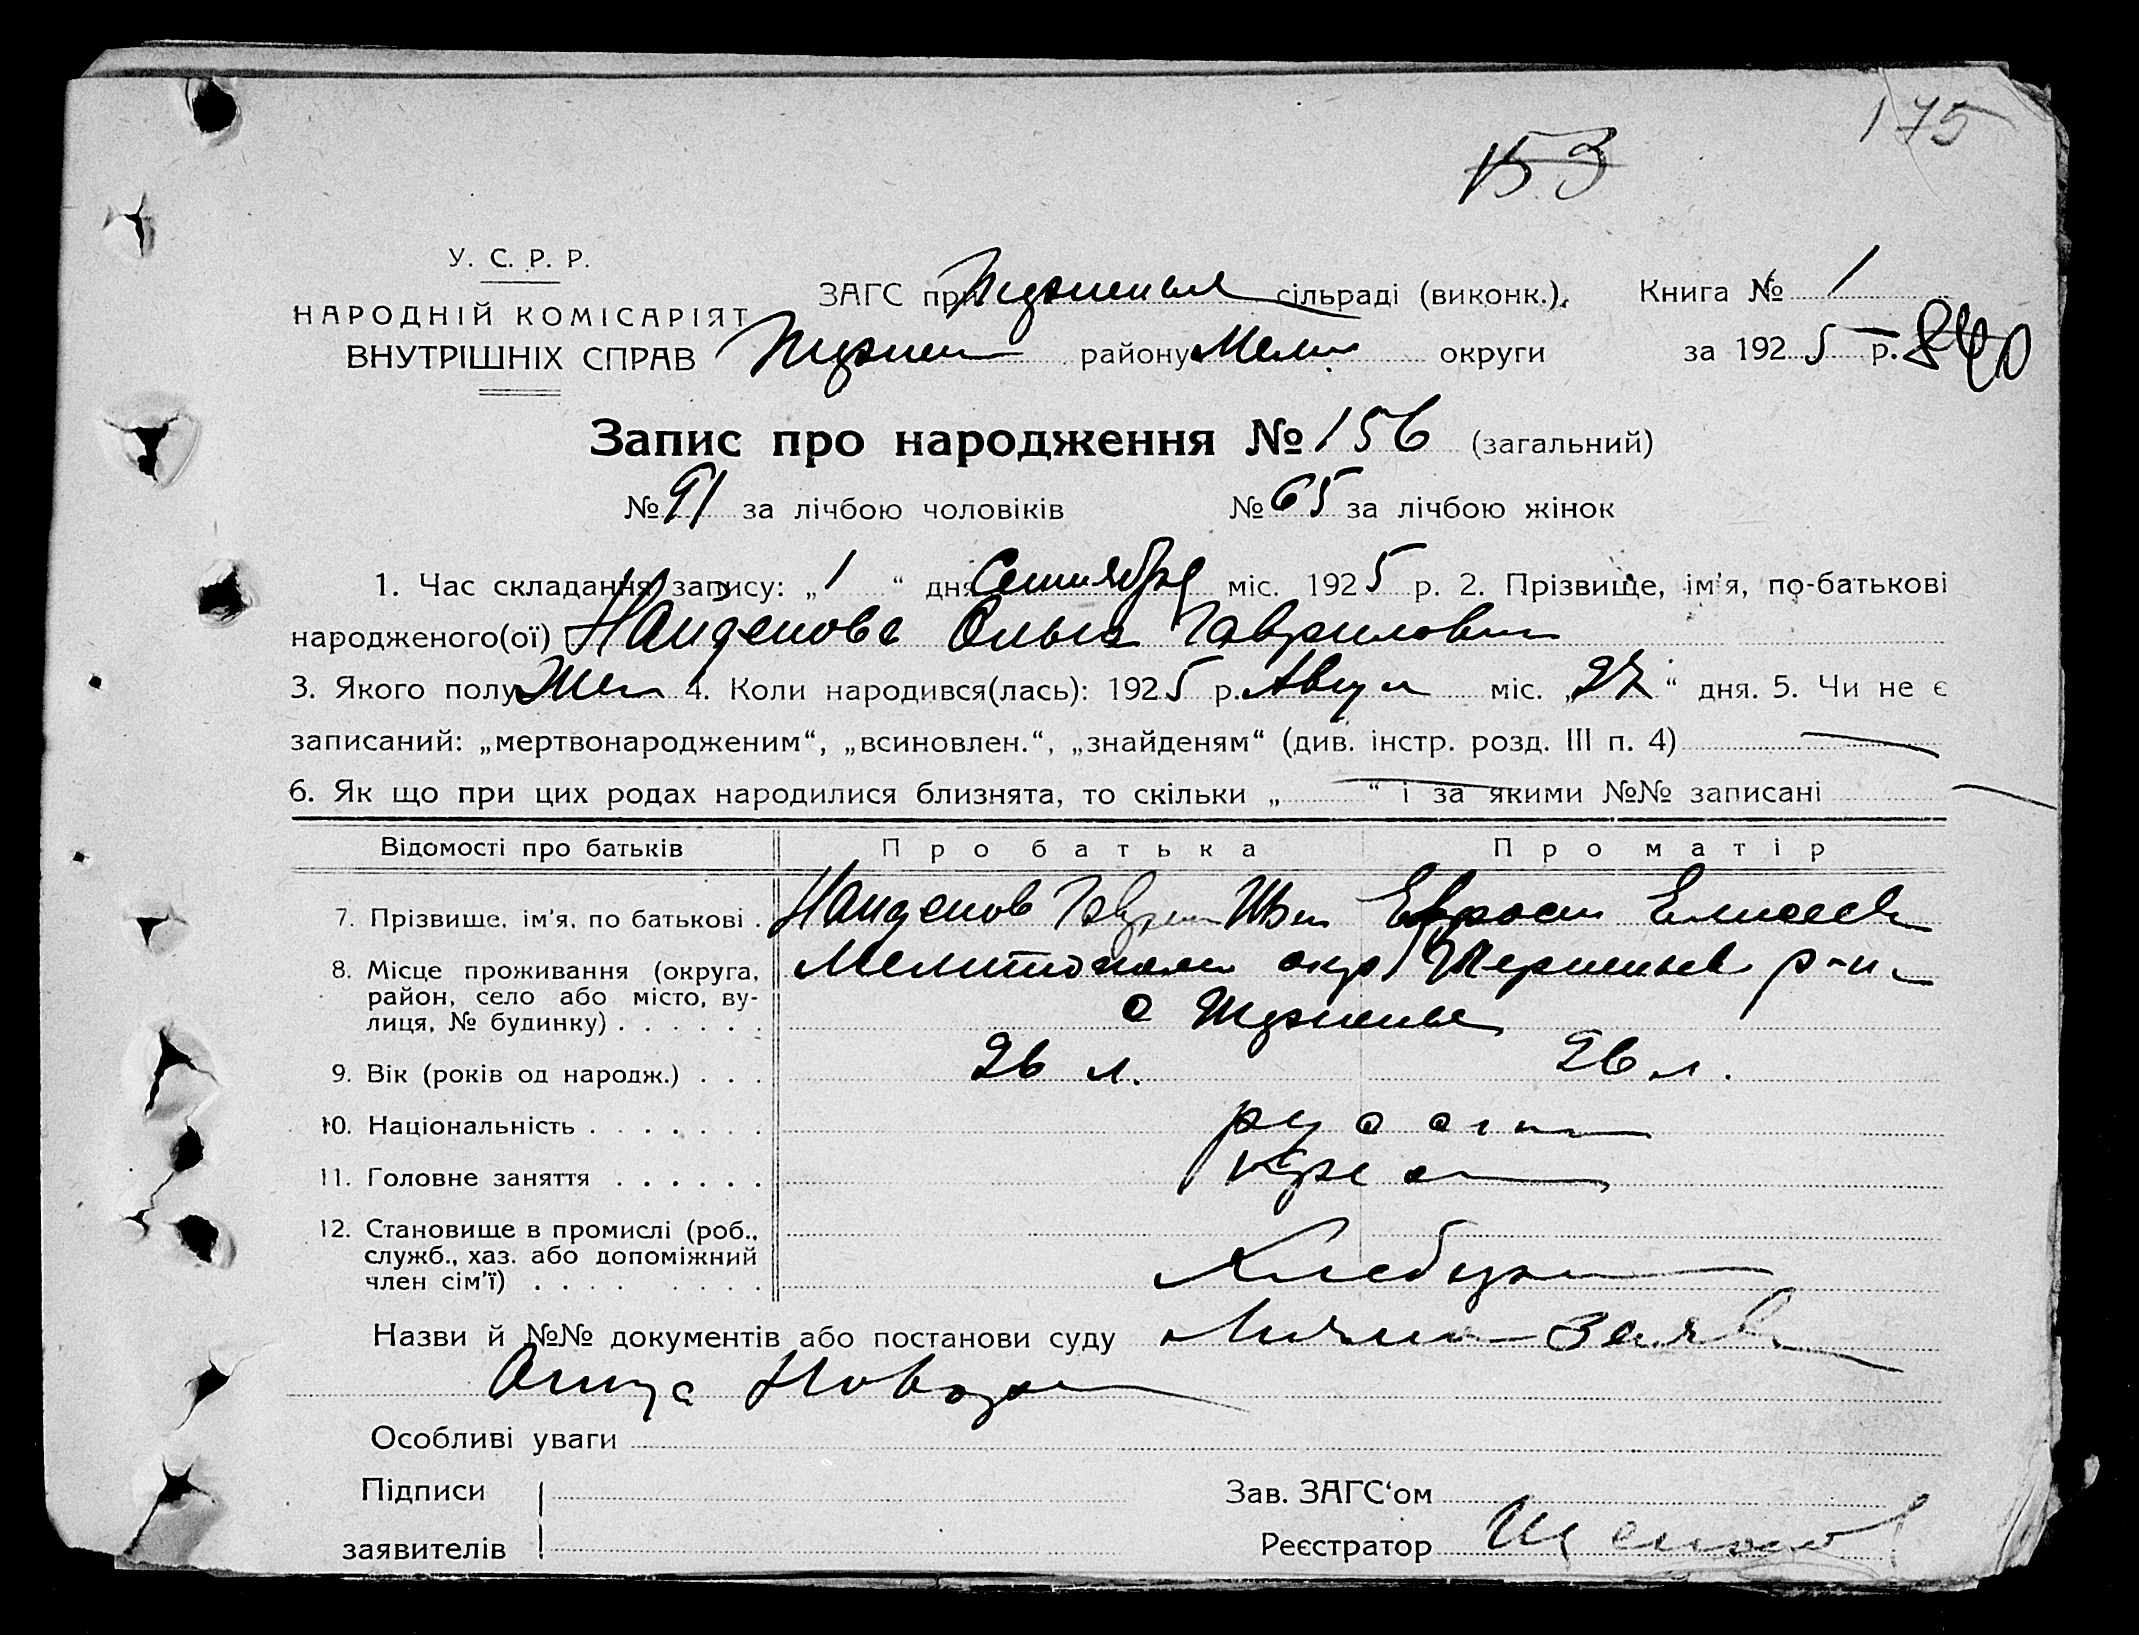 175
153
У. С. Р. Р.
НАРОДНІЙ КОМІСАРІЯТ
ВНУТРІШНІХ СПРАВ
ЗАГС при сільраді (виконк.),
Книга № 1
району Мели округи
за 1925 р. 840
Запис про народження № 156 (загальний)
№ 91 за лічбою чоловіків № 65 за лічбою жінок
1. Час складання запису: „1“ дня Сентября міс. 1925 р. 2. Прізвище, ім'я, по-батькові
народженого(ої) Найденова Ольга Гаврилови
3. Якого полу Жен 4. Коли народився(лась): 1925 р. Авгус міс. „27“ дня. 5. Чи не є
записаний: „мертвонародженим“, „всиновлен.“, „знайденям“ (див. інстр. розд. III п. 4)
6. Як що при цих родах народилися близнята, то скільки „ “ і за якими №№ записані
Відомості про батьків Про батька Про матір
7. Прізвище, ім'я, по батькові . Найденов Гаврил Ив Ефрос Елисеев
8. Місце проживання (округа, Мелитополь окр р-н
район, село або місто, ву-
лиця, № будинку) . . . . . . с
9. Вік (років од народж.) . . . 26 л. 26 л.
10. Національність . . . . . . . русск
11. Головне заняття . . . . . . крес
12. Становище в промислі (роб.,
служб., хаз. або допоміжний
член сім'ї) . . . . . . . . Хлебур
Назви й №№ документів або постанови суду Лично заяв
Отца Новорож
Особливі уваги
Підписи
заявителів
Зав. ЗАГС'ом
Реєстратор